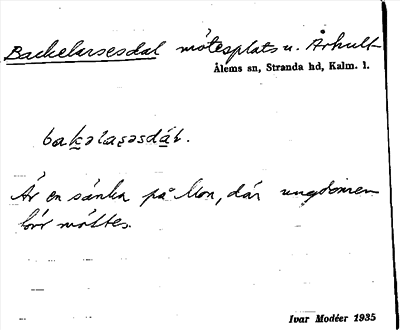 Backelarsesdal mötesplats u. Århult
Ålems sn, Stranda hd, Kalm. l.
bakəlaşəsdál.
Är en sänka på Mon, där ungdomen
förr möttes.
Ivar Modéer 1935